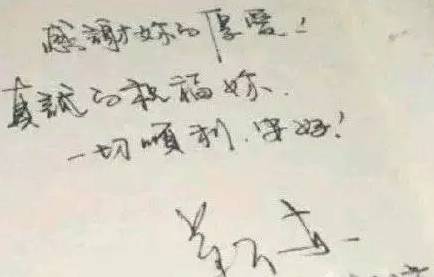 感謝妳的厚愛！
真誠的祝福妳．
一切順利．安好！